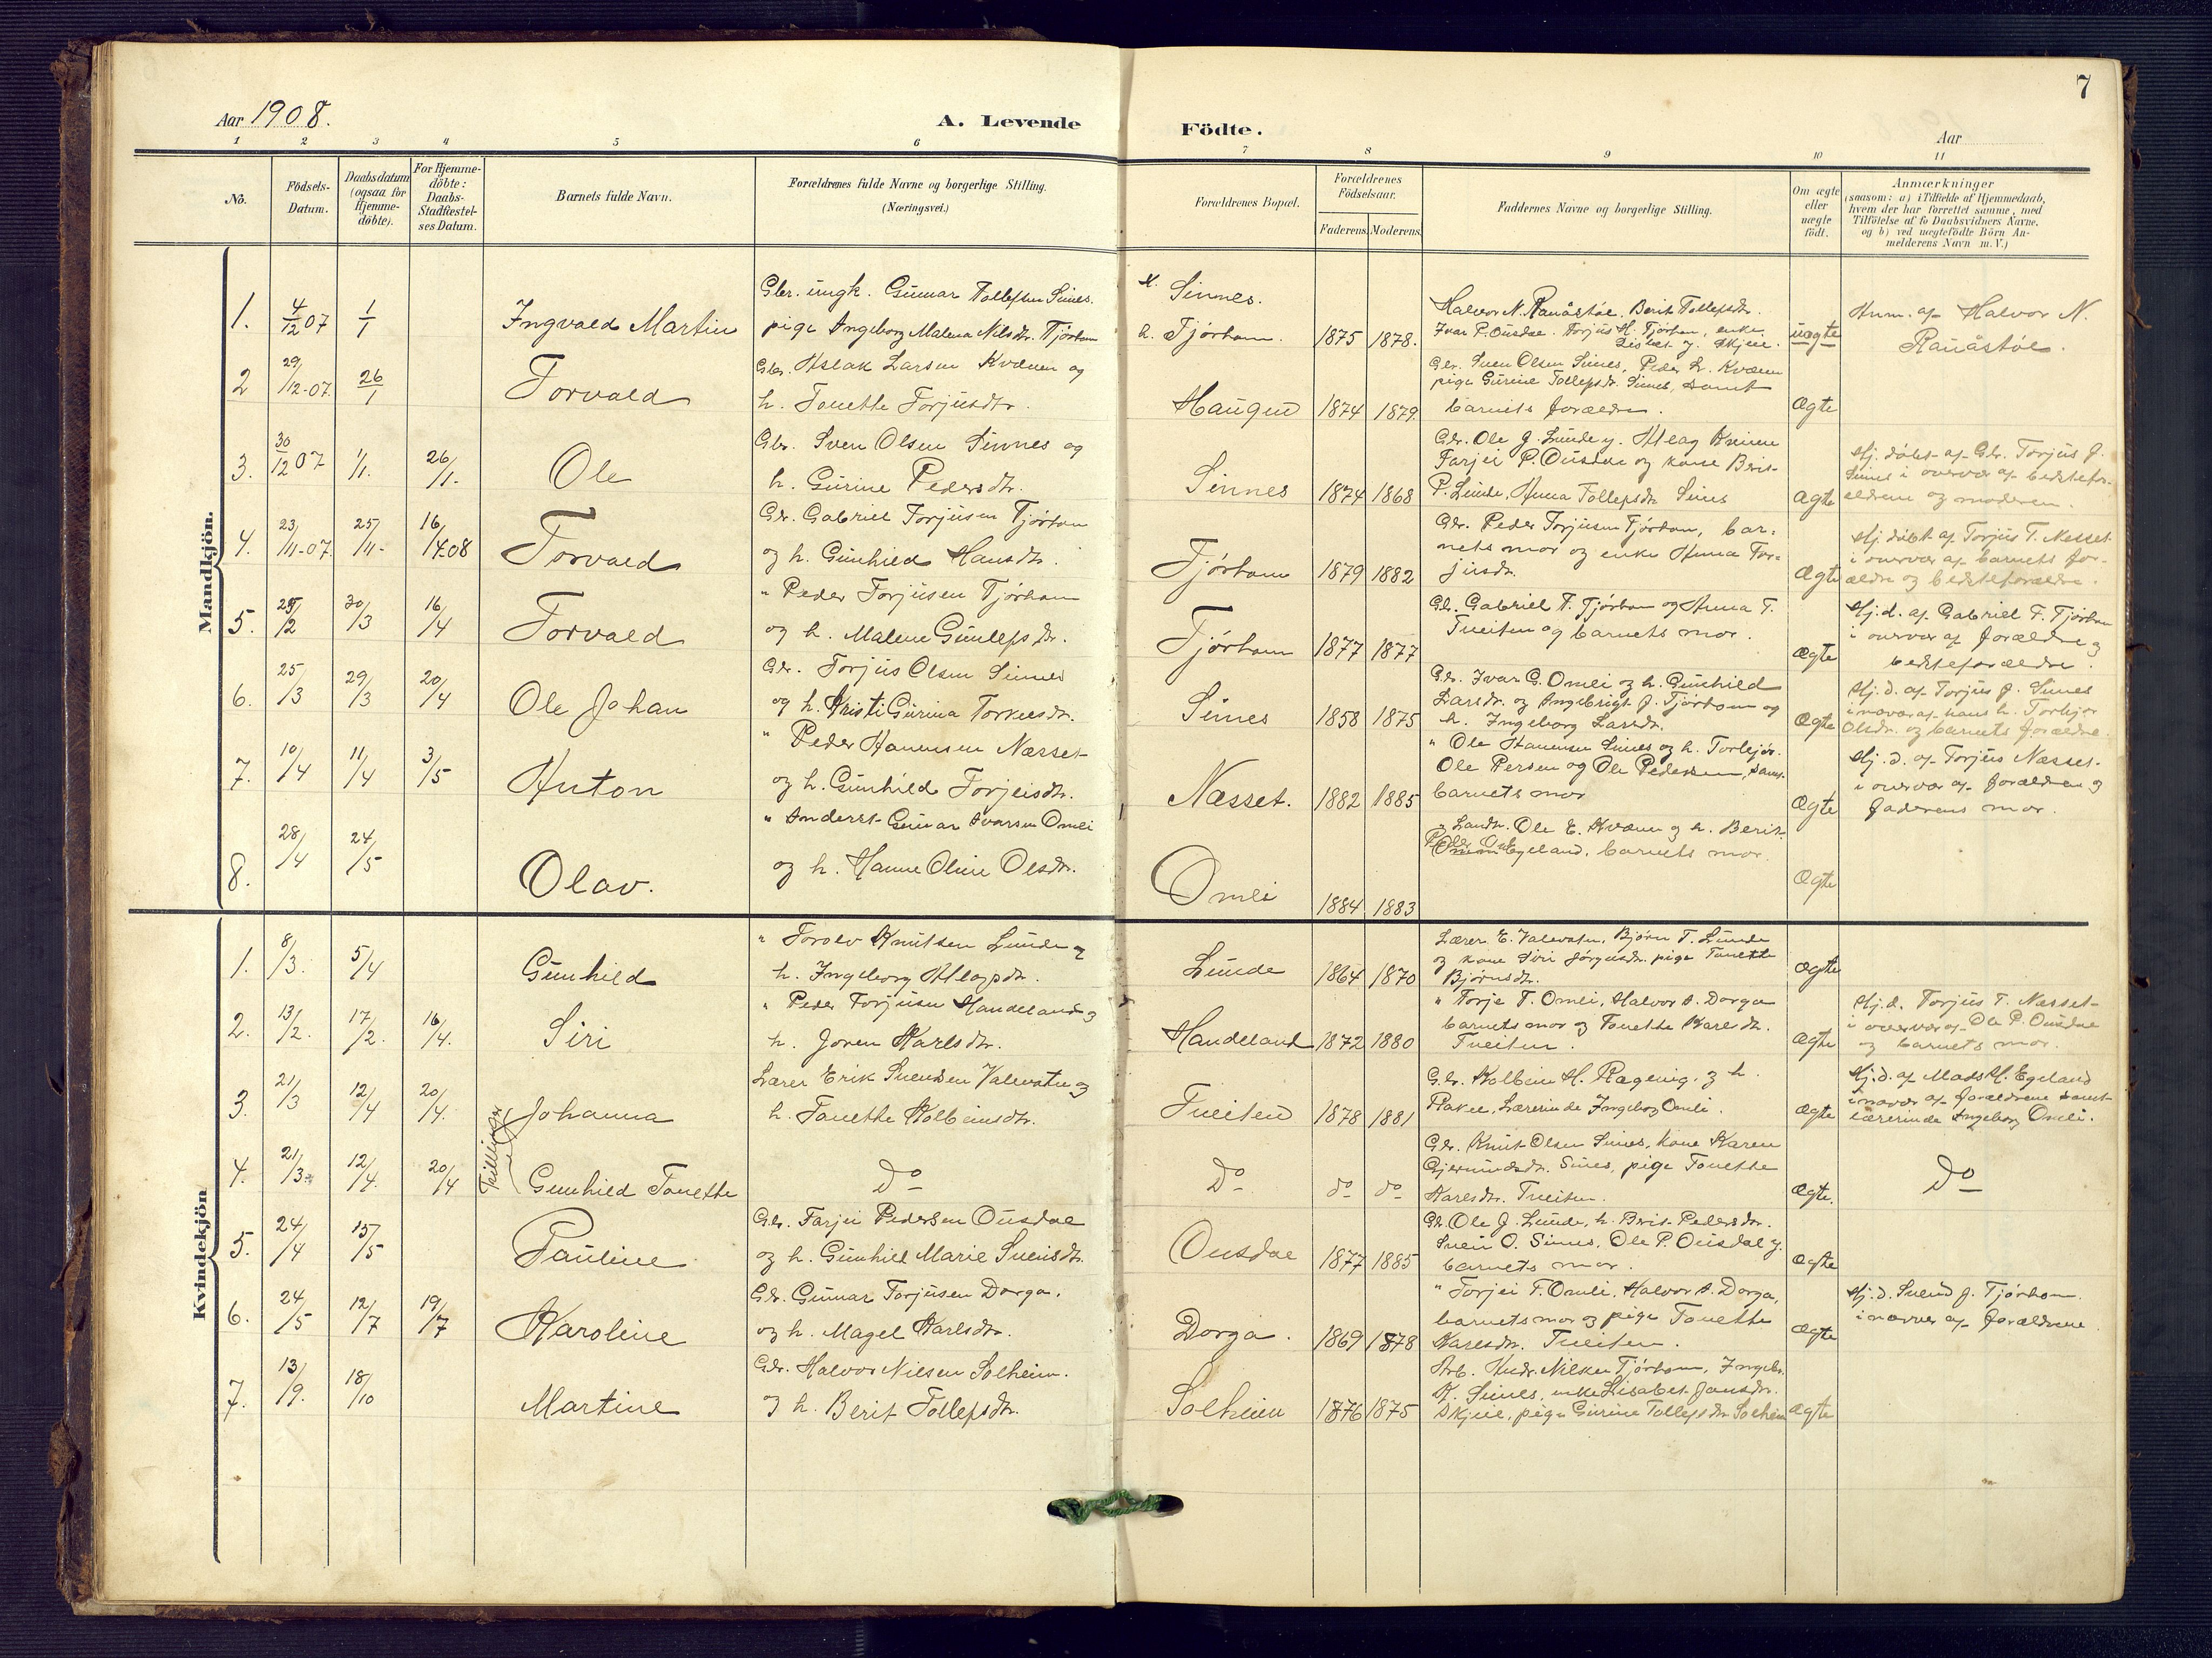 7
Aar 1908.
A. Levende Födte.
Aar
1 2 3 4 5 6 7 8 9 10 11
No.
Födsels-
Datum.
Daabsdatum
(ogsaa for
Hjemme-
döbte).
For Hjemme-
döbte:
Daabs-
Stadfæstel-
ses Datum.
Barnets fulde Navn.
Forældrenes fulde Navne og borgerlige Stilling.
(Næringsvei.)
Forældrenes Bopæl.
Forældrenes
Födselsaar.
Faderens. Moderens.
Faddernes Navne og borgerlige Stilling.
Om ægte
eller
uægte
födt.
Anmærkninger
(saasom: a) i Tilfælde af Hjemmedaab,
hvem der har forrettet samme, med
Tilföielse af to Daabsvidners Navne.
og b) ved uægtefödte Börn An-
melderens Navn m. V.)
Mandkjön.
1. 4/12 07 1/1
Ingvald Martin
Gbr. ungk. Gunnar Tollefsen Sinnes.
pige Ingeborg Malena Nilsdr. Tjörhom
Sinnes.
h. Tjörhom.
1875 1878.
Halvor N. Rauåstöl. Berit Tollefsdr.
Ivar P. Ousdal. Torjus H. Tjörhom, enke
Lisbet J. Skjeie.
uægte
Anm. af Halvor N.
Rauåstöl.
2 29/12-07. 26/1
Torvald
Gbr. Aslak Larsen Kvænen og
h. Tonette Torjusdtr.
Haugen
1874 1879.
Gbr. Sven Olsen Sinnes, Peder L. Kvæven
pige Gurine Tollefsdr. Sinnes, samt
barnets forældre.
Ægte
3. 30/12 07 1/1. 26/1.
Ole
Gbr. Sven Olsen Sinnes og
h. Gurine Pedersdtr.
Sinnes
1874 1868
Gbr. Ole J. Lunde
Tarjei P. Ousdal og kone Berit
P. Lunde, Anna Tollefsdr. Sines
Ægte
Hj. döbt af Gbr. Torjus J.
Sines i overvær af bedstefor-
ældrene og moderen.
4. 23/11-07. 25/11- 16/4.08
Torvald
Gbr. Gabriel Torjusen Tjörhom
og h. Gunhild Hansdtr.
Tjörhom
1879 1882
Gbr. Peder Torjusen Tjörhom, bar-
nets mor og enke Anna Tor-
jusdr.
Ægte
Hj. döbt af Torjus T. Nesset
i overvær af barnets for-
ældre og bedsteforældre.
5. 25/2 30/3 16/4
Torvald
" Peder Torjusen Tjörhom
og h. Malene Gunlefsdr.
Tjörhom
1877 1877
Gb. Gabriel T. Tjörhom og Anna T.
Tveiten og barnets mor.
Ægte
Hj. d. af Gabriel T. Tjörhom
i overvær af forældre og
bedsteforældre.
6. 25/3 29/3 20/4
Ole Johan
Gbr. Torjus Olsen Sinnes
og h. Kristi Gurina Torkelsdr.
Sines
1858 1875
Gbr. Ivar G. Omli og h. Gunhild
Larsdr. og Ingebrigt J. Tjörhom og
h. Ingeborg Larsdr.
Ægte
Hj. d. af Torjus J. Sines
i nærvær af hans h. Torbjor
Olsdr. og barnets forældre.
7. 10/4 11/4 3/5
Anton
" Peder Hanensen Næsset
og h. Gunhild Torjeisdtr.
Næsset.
1882 1885
" Ole Hanensen Sines og h. Torbjör.
Ole Persen og Ole Pedersen, samt
barnets mor
Ægte
Hj. d. af Torjus Næsset.
i overvær af forældren og
faderens mor.
8. 28/4 24/5
Olav.
" Anderst Gunnar Ivarsen Omli
og h. Hanne Oline Olsdtr.
Omli
1884 1883
" Landh. Ole E. Kvæven og h. Berit
Egeland, barnets mor.
Ægte
Kvindekjön
1. 8/3. 5/4
Gunhild
" Torolv Knutsen Lunde og
h. Ingeborg Atlagsdtr.
Lunde
1864 1870
Lærer E. Valevatn, Björn T. Lunde
og kone Siri Jörgensdr. pige Tonette
Björnsdtr.
Ægte
2. 13/2. 17/2. 16/4.
Siri
" Peder Torjusen Handeland og
h. Joren Karlsdtr.
Handeland
1872 1880
" Torje T. Omli, Halvor S. Dorga
barnets mor og Tonette Karlsdtr.
Tveiten.
Ægte
Hj. d. Torjus T. Næsset
i overvær af Ole P. Ousdal
og barnets mor.
3. 21/3 12/4 20/4.
Tvillinger
Johanna
Lærer Erik Svendsen Valevatn og
h. Tonette Kolbeinsdtr.
Tveiten
1878 1881
Gbr. Kolbein H. Rageing. og h.
Rakel, Lærerinde Ingeborg Omli.
Ægte
Hj. d. af Mads H. Egeland
i nærvær af forældrene samt
lærerinde Ingeborg Omli.
4. 21/3. 12/4. 20/4
Gunhild Tonette
Do
Do
do do
Gbr. Knut Olsen Sines, kone Karen
Gjermundsdr. Sines, pige Tonette
Karlsdtr. Tveiten.
Ægte.
Do
5. 24/4 15/5
Pauline
Gbr. Tarjei Pedersen Ousdal
og h. Gunhild Marie Svensdtr.
Ousdal
1877 1885
Gb. Ole J. Lunde, h. Berit Pedersdr.
Svein O. Sines, Ole P. Ousdal og
barnets mor.
Ægte
6. 24/5 12/7 19/7
Karoline
Gbr. Gunnar Torjusen Dorga.
og h. Magel Karlsdtr.
Dorga.
1869 1878
" Torjei T. Omli, Halvor S. Dorga,
barnets mor og pige Tonette
Karlsdtr. Tveiten.
Ægte
Hj. d. Svend J. Tjörhom.
i nærvær af forældrene
7. 13/9. 18/10
Martine
Gbr. Halvor Nilsen Solheim.
og h. Berit Tollefsdtr.
Solheim
1876 1875
Arb. Andr. Nilsen Tjörhom, Ingebr.
K. Sines, enke Lisabet Jonsdtr.
Skjeie, pige Gurine Tollefsdtr Solheim
Ægte